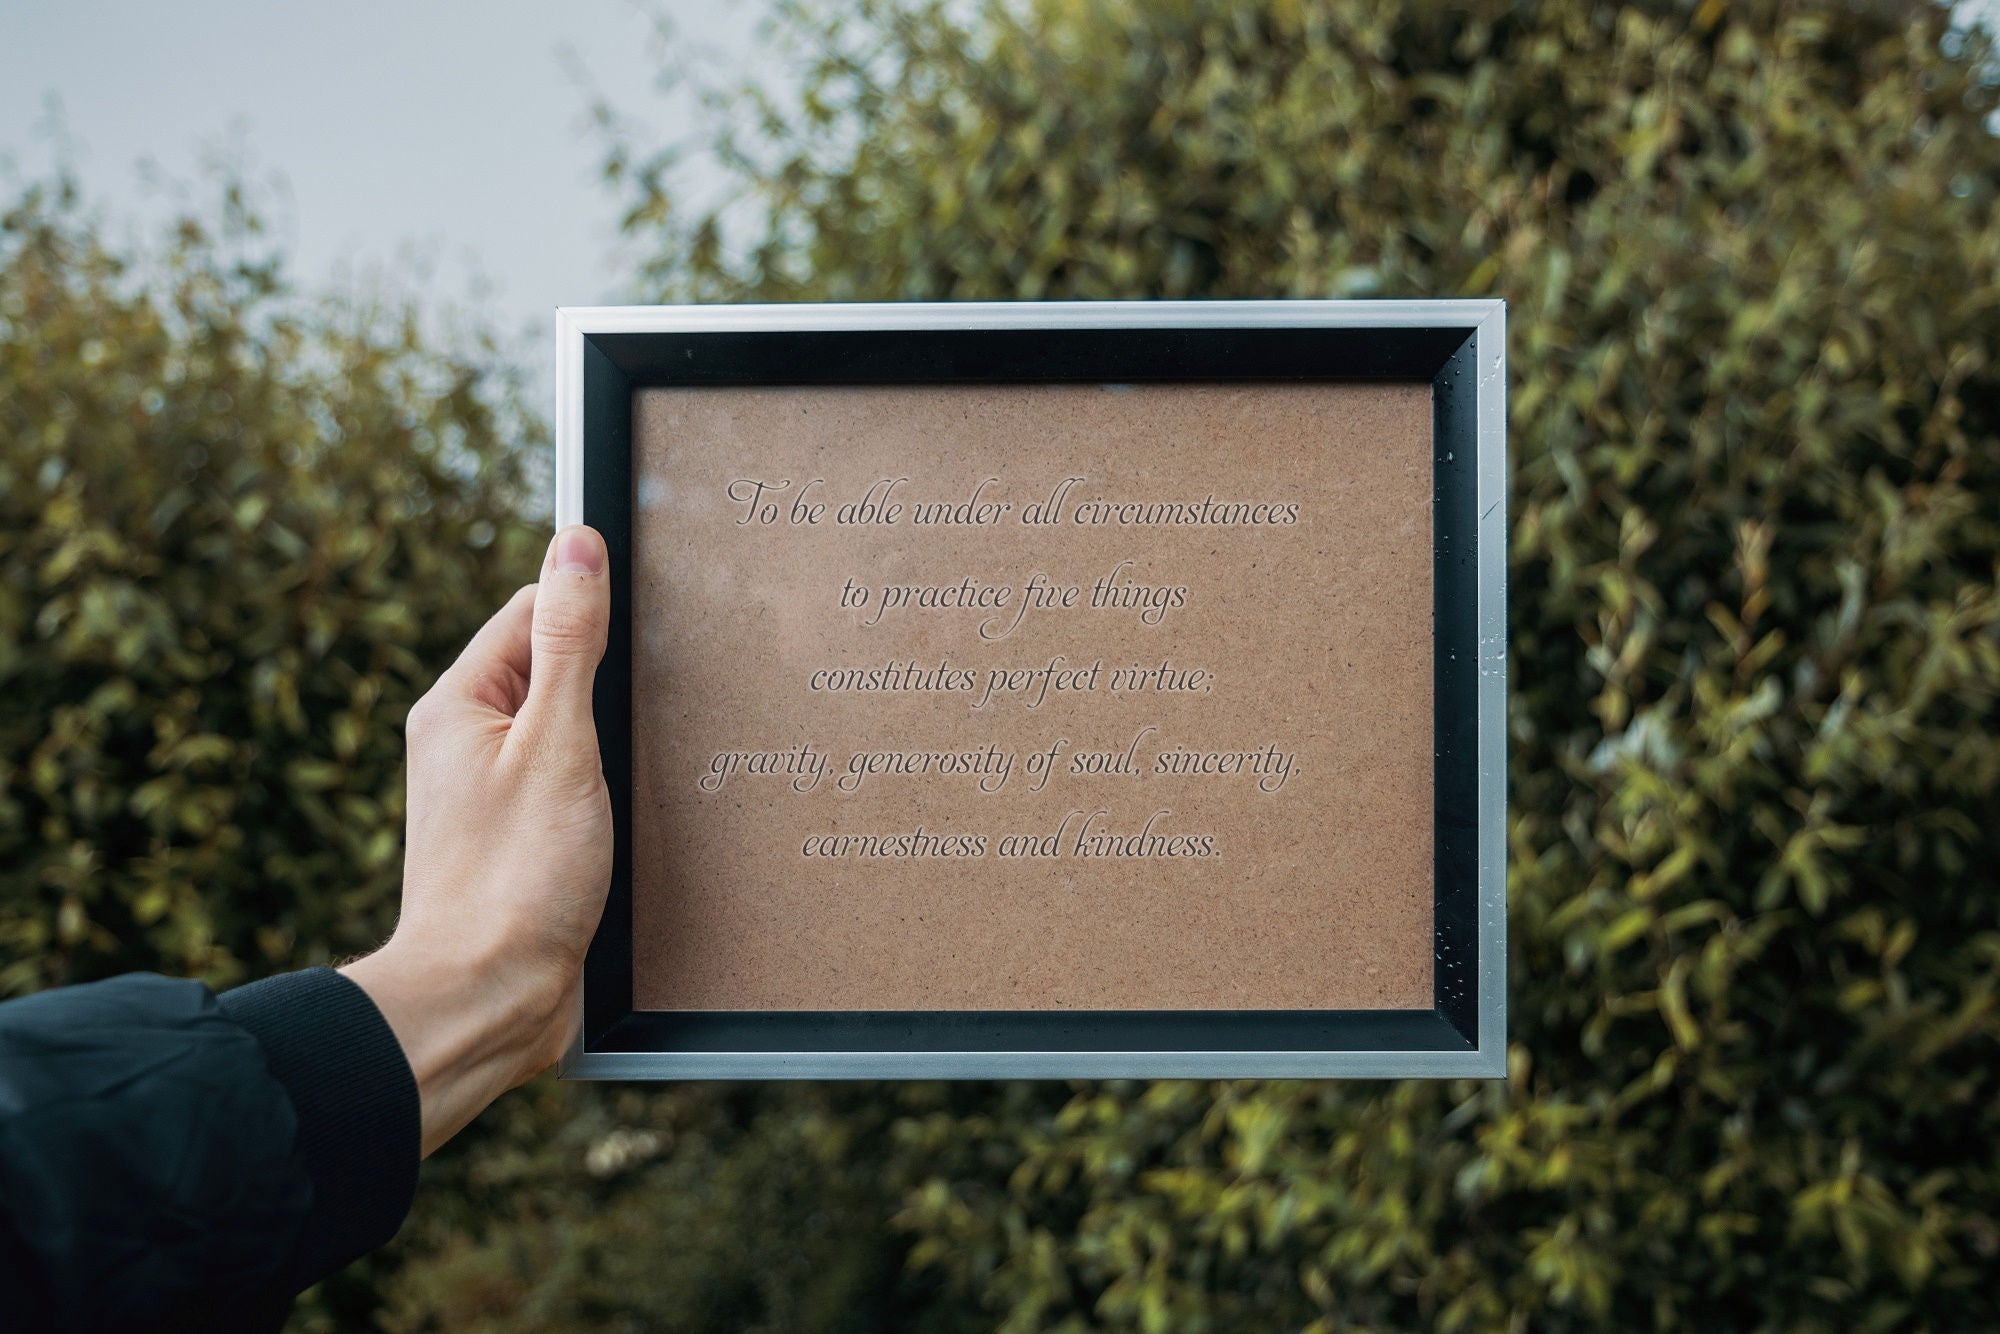 To be able under all circumstances
to practice five things
constitutes perfect virtue;
gravity, generosity of soul, sincerity,
earnestness and kindness.